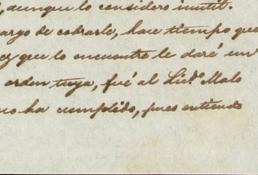 , aunque lo considero inutil.
argo de cobrarle, hace tiempo que
ez que lo encuentre le daré un
orden tuya, fué al Licdo. Malo
no ha cumplido, pues entiendo